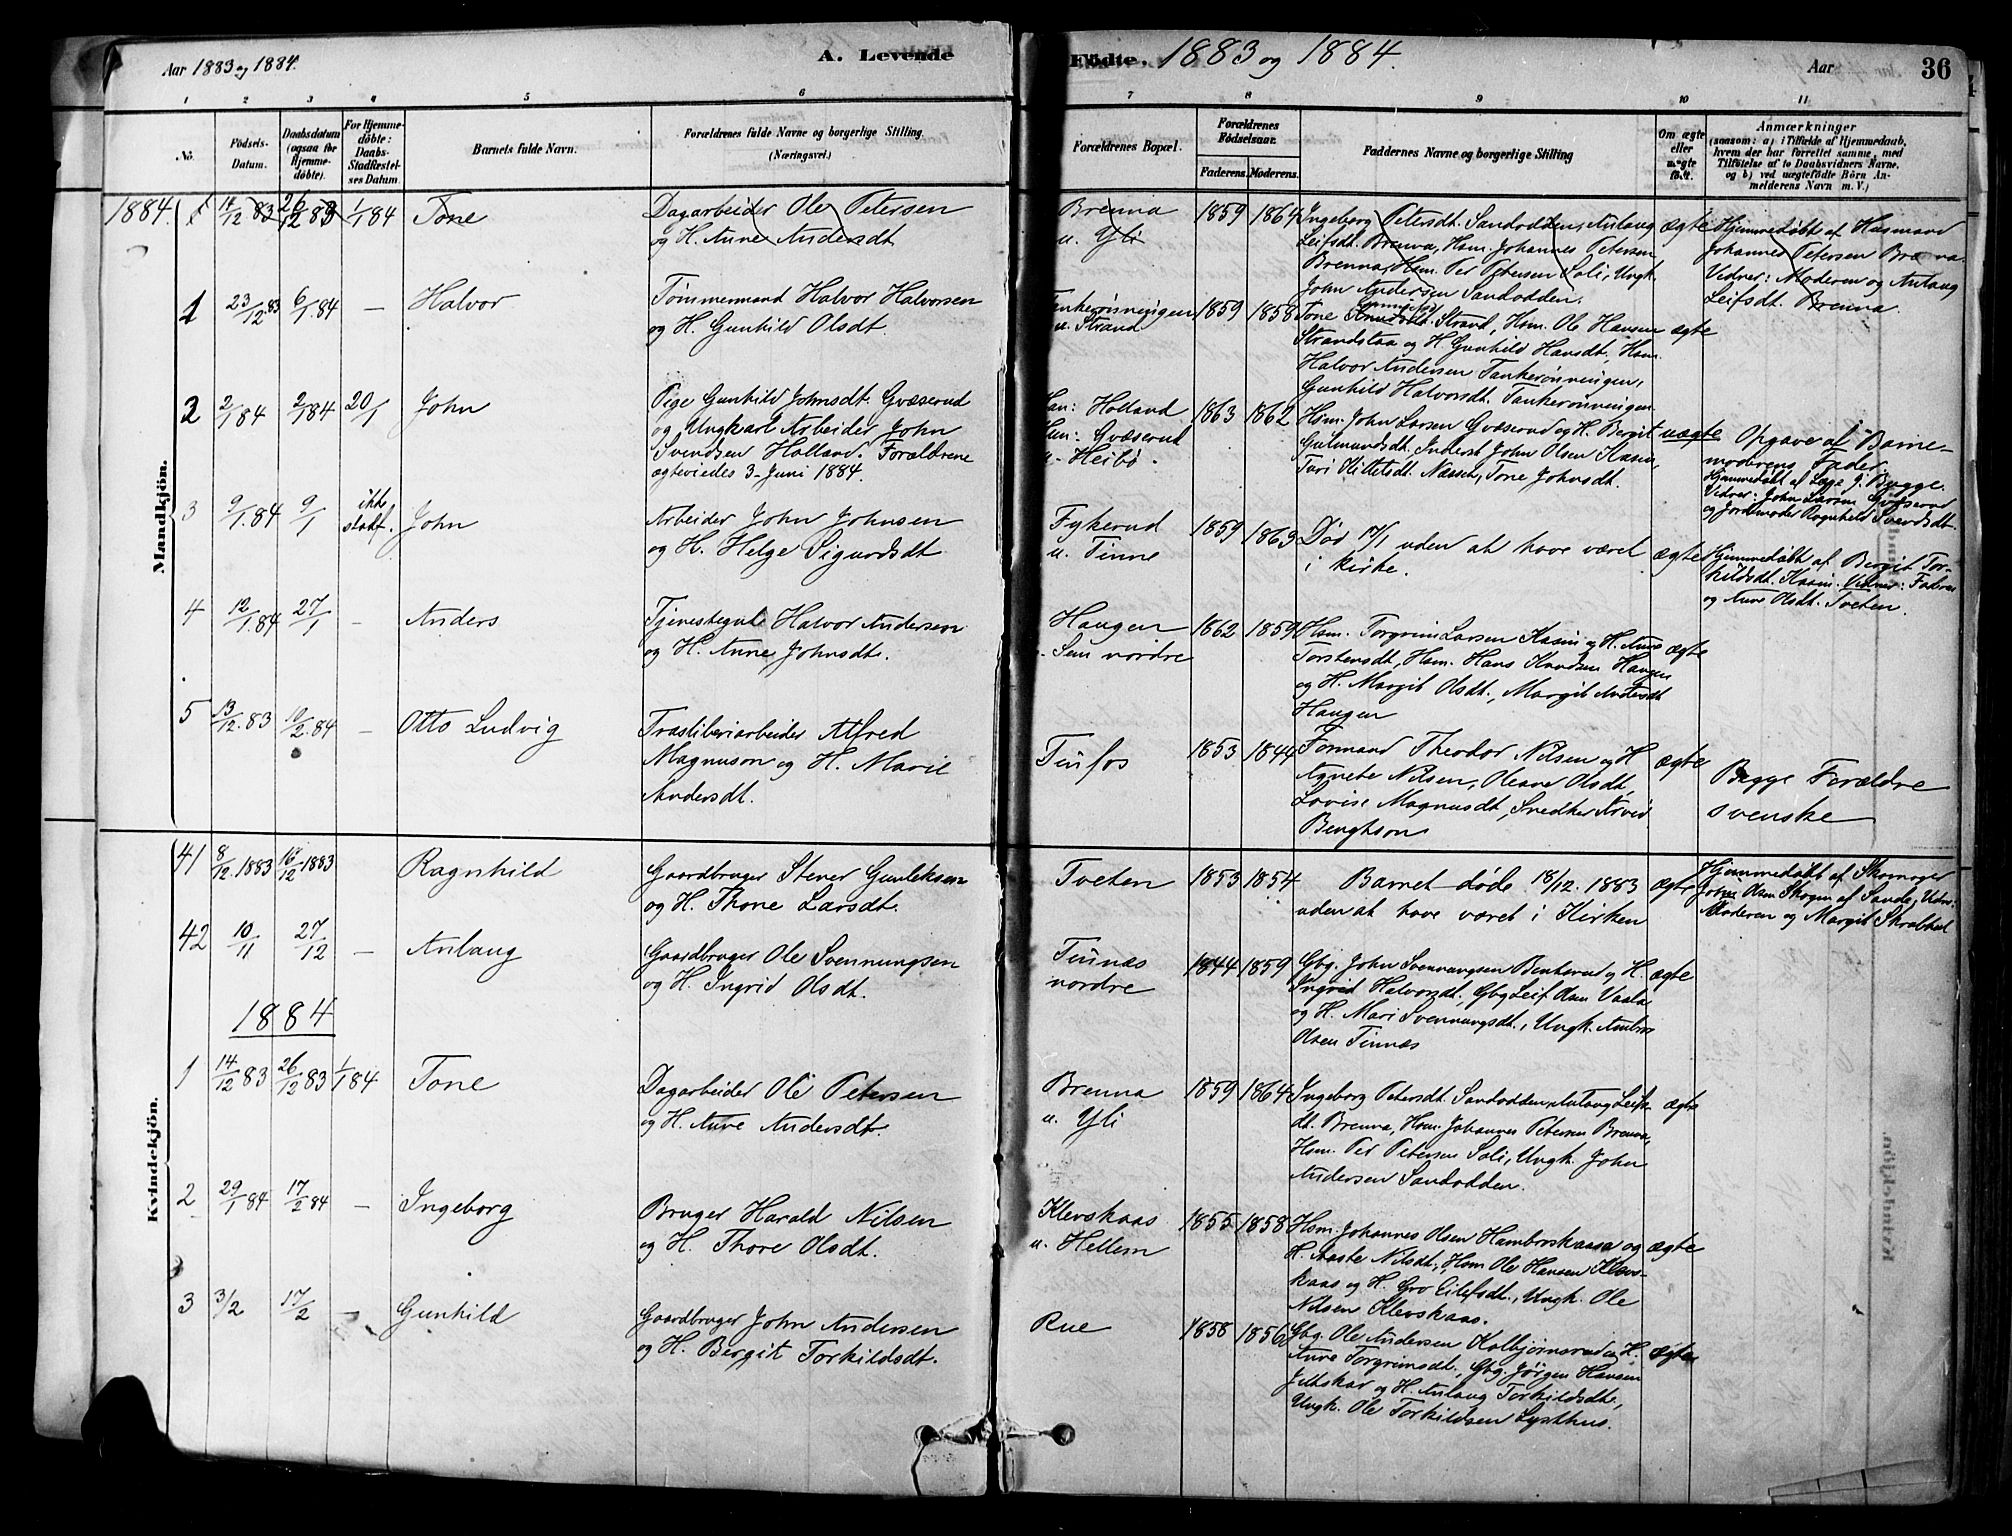 Aar 1883 og 1884.
A. Levende
Födte. 1883 og 1884.
Aar
36
1 2 3 4 5 6 7 8 9 10 11
No.
Födsels-
Datum.
Daabsdatum
(ogsaa for
Hjemme-
döbte).
For Hjemme-
döbte:
Daabs-
Stadfæstel-
ses Datum.
Barnets fulde Navn.
Forældrenes fulde Navne og borgerlige Stilling.
(Næringsvei.)
Forældrenes Bopæl.
Forældrenes
Födselsaar.
Faderens. Moderens.
Faddernes Navne og borgerlige Stilling
Om ægte
eller
uægte
föd.
Anmærkninger
(saasom: a) i Tilfælde af Hjemmedaab,
hvem der har forrettet samme, med
Tilföielse af to Daabsvidners Navne.
og b) ved uægtefödte Börn An-
melderens Navn m. V.)
Mandkjön.
1884. 1 14/12 83 26/12 83 1/1 84 Tone
Dagarbeider Ole Petersen
og H. Anne Andersdt.
Brenna
u. Yli
1859 1864
Ingeborg Petersdt. Sandodden, Anlaug
Leifsdt. Brenna, Hsm. Johannes Petersen
Brenna, Hsm. Per Petersen Soli, Ungk.
John Andersen Sandodden.
ægte
Hjemmedøbt af Husmand
Johannes Petersen Brenna.
Vidner: Moderen og Anlaug
Leifsdt. Brenna.
1 23/12 83 6/1 84 — Halvor
Tømmermand Halvor Halvorsen
og H. Gunhild Olsdt.
Tankerønningen
u. Strand
1859 1858
Tone Strand, Hsm. Ole Hansen
Strandstaa og H. Gunhild Hansdt., Hsm.
Halvor Andersen Tankerønningen,
Gunhild Halvorsdt. Tankerønningen
ægte
2 2/1 84 2/1 84 20/1 John
Pige Gunhild Johnsdt. Gvæserud
og Ungkarl Arbeider John
Svendsen Holland. Forældrene
ægtevიedes 3. Juni 1884.
Han: Holland
Hun: Gvæserud
u. Heibø.
1863 1862
Hsm. John Larsen Gvæserud og H. Bergit
Gulmundsdt. Inderst John Olsen Kasin,
Turi Olsdt. Næsset, Tone Johnsdt.
uægte
Opgave af Barne-
moderens Fader.
Hjemmedøbt af Læge J. Bugge.
Vidner: John Larsen Gvæserud
og Jordemoder Ragnhild Svendsdt.
3 9/1.84 9/1 ikke
stadf. John
Arbeider John Johnsen
og H. Helge Sigurdsdt
Fykerud
u. Tinne
1859 1863
Død 17/1 uden at have været
i Kirke.
ægte
Hjemmedøbt af Bergit Tor-
kildsdt. Kasin. Vidner: Faderen
og Anne Olsdt. Sveten.
4 12/1.84 27/1 - Anders
Tjenestegut Halvor Andersen
og H. Anne Johnsdt.
Haugen
Sem nordre
1862 1859
Hsm. Torgrim Larsen Kasin og H. Anne
Torstensdt, Hsm. Hans Knudsen Haugen
og H. Margit Olsdt. Margit Andersdt
Haugen
ægte
5 13/12.83 10/2.84 — Otto Ludvig
Træsliberiarbeider Alfred
Magnuson og H. Marie
Andersdt.
Tinfos
1853 1844
Formand Theodor Nilsen og H
Agnete Nilsen, Oleane Olsdt,
Lovise Magnusdt, Snedker Arvid
Bengtson
ægte
Begge Forældre
svenske
Kvindekjön.
41 8/12.1883 16/12 1883 Ragnhild
Gaardbruger Stener Gunleksen
og H. Thone Larsdt.
Tveten
1853 1854
Barnet døde 18/12. 1883
uden at have været i Kirken
ægte
Hjemmedøbt af Skomager
John Olsen Skogen af Sande, Vidn:
Moderen og Margit
42 10/11 27/12 — Anlaug
Gaardbruger Ole Svennungsen
og H. Ingrid Olsdt.
Tinnæs
nordre
1844 1859
Gbg. John Svennungsen Benterud og H.
Ingrid Halvorsdt. Gbg Leif Olsen Vaala
og H. Mari Svennungsdt., Ungk. Ambros
Olsen Tinnæs
ægte
1884
1 14/12 83 26/12 83 1/1 84 Tone
Dagarbeider Ole Petersen
og H. Anne Andersdt.
Brenna
u. Yli
1859 1864
Ingeborg Petersdt. Sandodden, Anlaug Leifs-
dt. Brenna, Hsm. Johannes Petersen Brenna,
Hsm. Per Petersen Soli, Ungk. John
Andersen Sandodden.
ægte
2 29/1 84 17/2 84 — Ingeborg
Bruger Harald Nilsen
og H. Thore Olsdt.
Klevskaas
u. Hellem
1855 1858
Hsm. Johannes Olsen Hambroskaasa og
H. Aaste Nilsdt., Hsm Ole Hansen Klevs-
kaas og H. Gro Eilefsdt., Ungk. Ole
Nilsen Klevskaas.
ægte
3 3/2 17/2 — Gunhild
Gaardbruger John Andersen
og H. Bergit Torkildsdt.
Rue
1858 1856
Gbg. Ole Andersen Kolbjørnsrud og H.
Anne Torgrimsdt., Gbg. Jørgen Hansen
Jeltskar og H. Anlaug Torkildsdt.,
Ungk. Ole Torkildsen Lysthus.
ægte